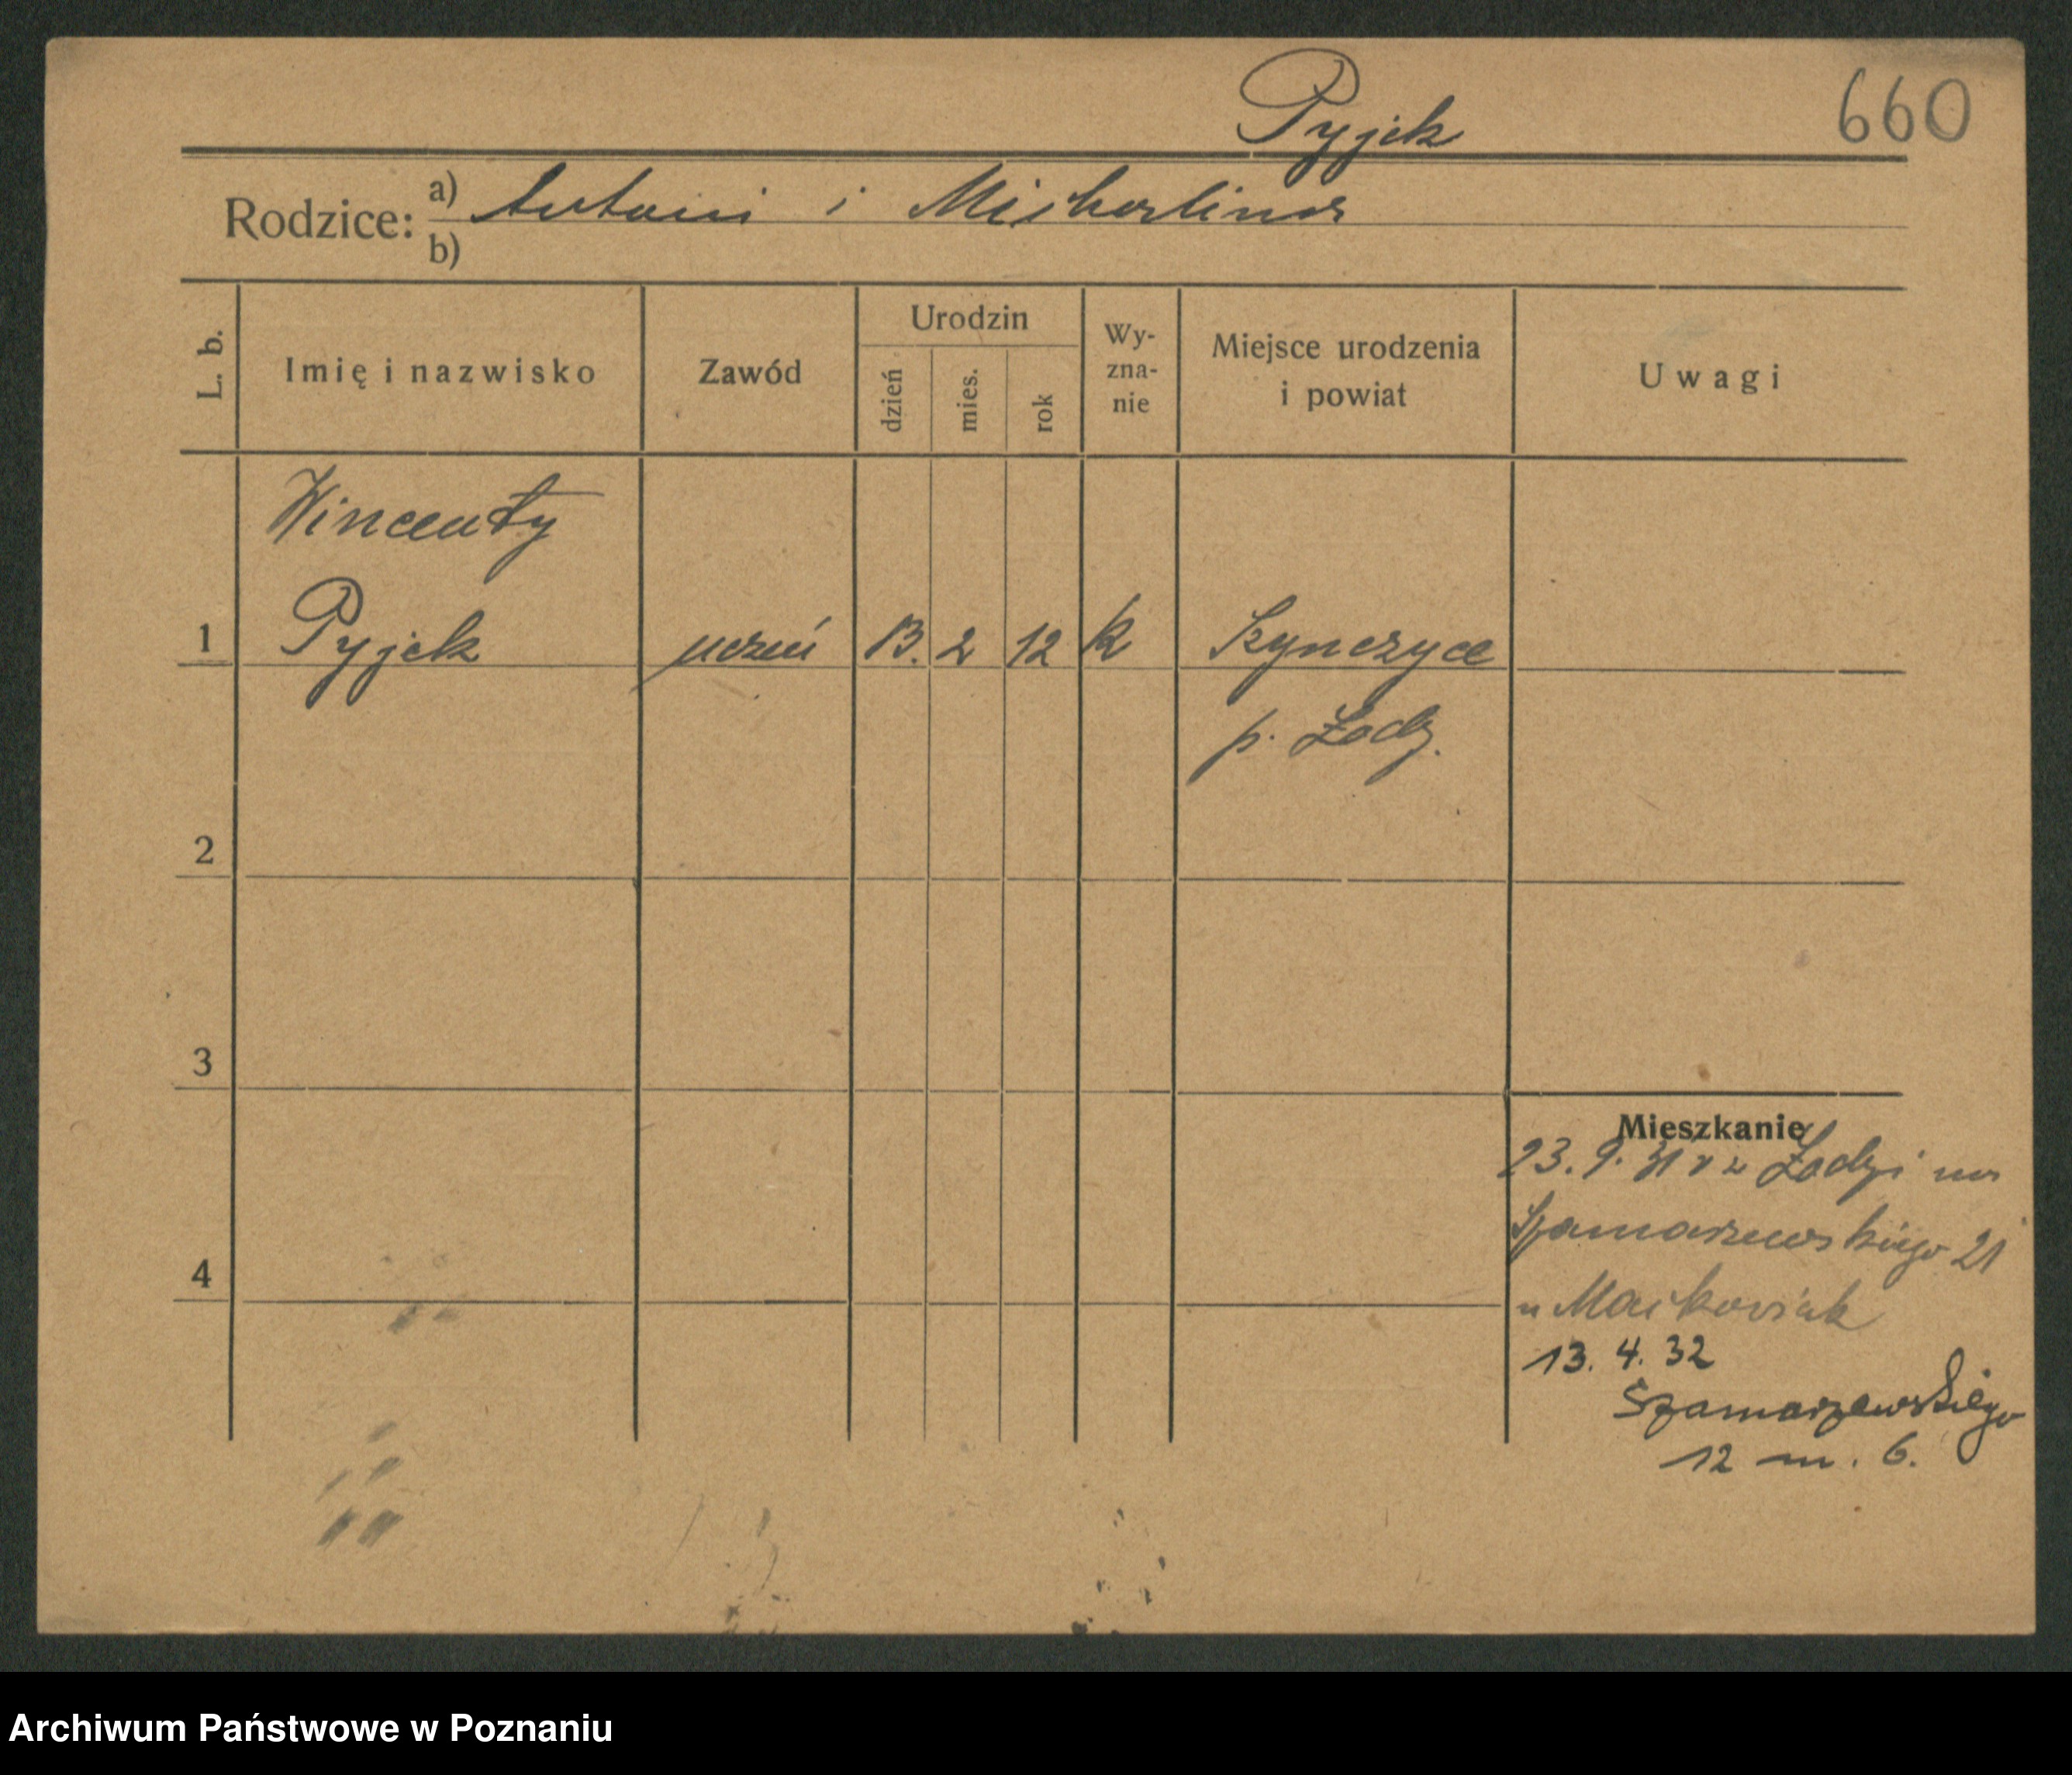 Pyjek
660
Rodzice: a) Antoni i Michalina
b)
L. b.
Imię i nazwisko
Zawód
Urodzin
dzień
mies.
rok
Wy-
zna-
nie
Miejsce urodzenia
i powiat
Uwagi
Wincenty
1 Pyjek uczeń 13. 2 12 k
p. Łodz.
2
3
4
Mieszkanie
23. 9. 31 z Łodzi na
Szamarzewskiego 21
u
13. 4. 32
Szamarzewskiego
12 m. 6.
Archiwum Państwowe w Poznaniu